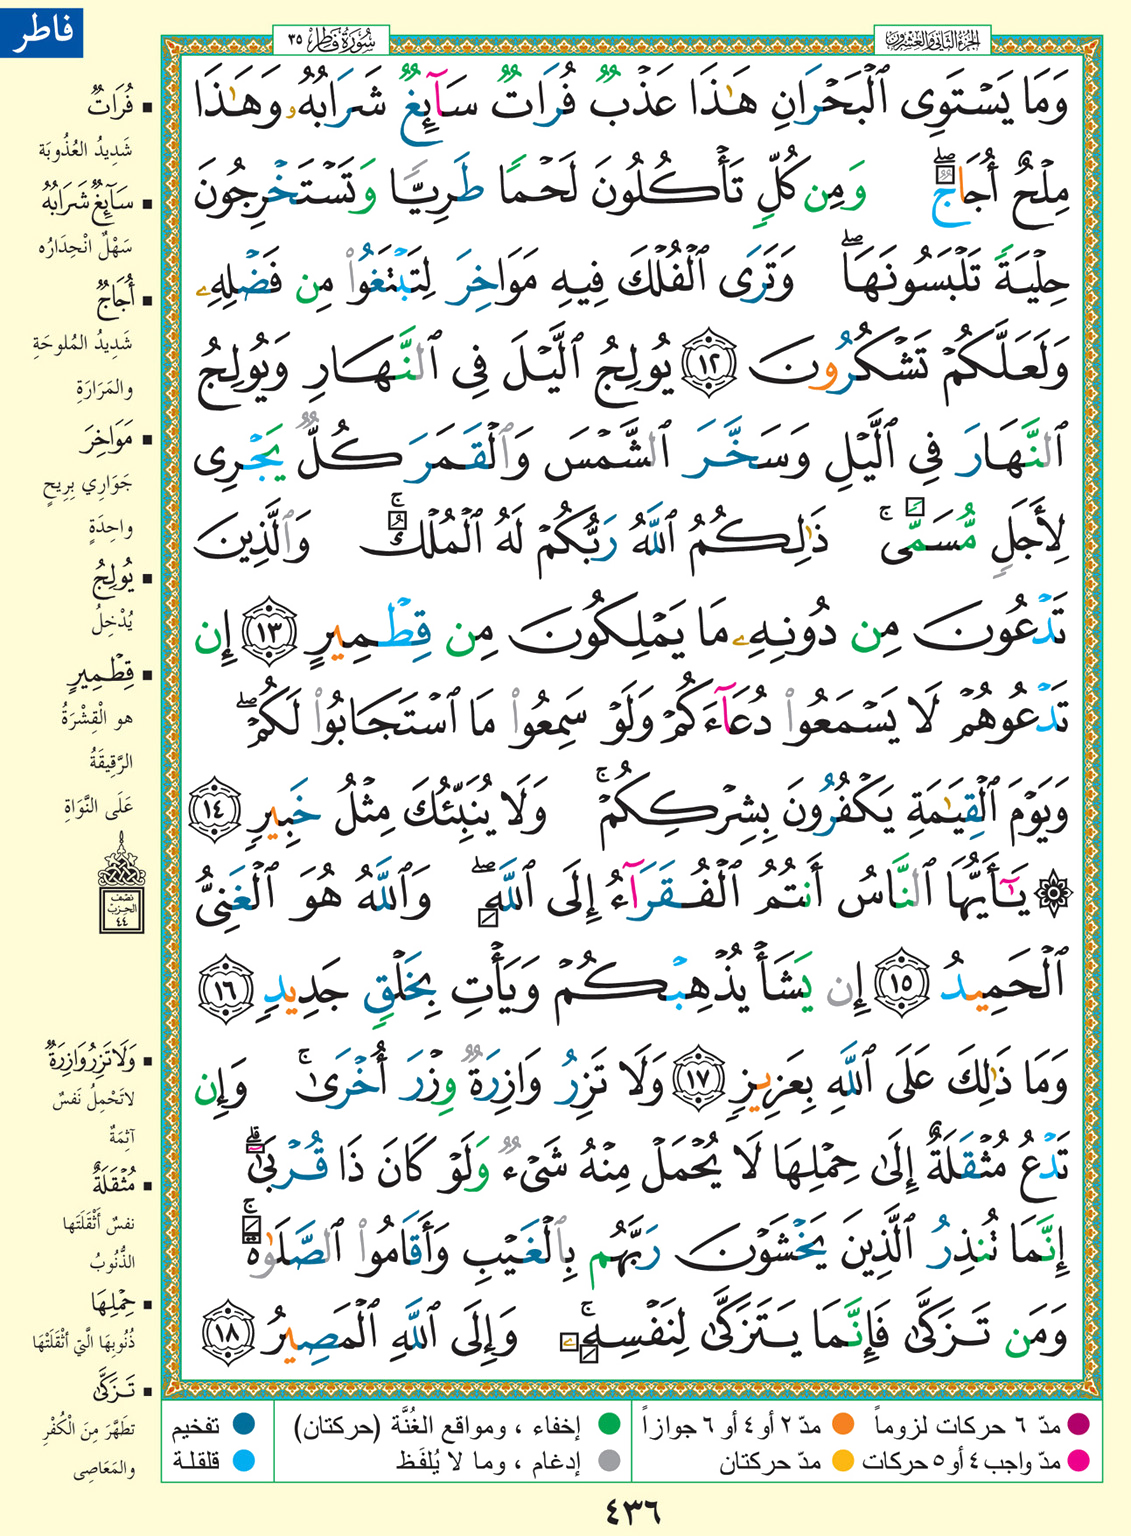 فَاطِر
الجزء الثاني والعشرون
سُورَةُ فَاطِر ٣٥
وَمَا يَسْتَوِى ٱلْبَحْرَانِ هَـٰذَا عَذْبٌ فُرَاتٌ سَآئِغٌ شَرَابُهُۥ وَهَـٰذَا
مِلْحٌ أُجَاجٌ ۖ وَمِن كُلٍّ تَأْكُلُونَ لَحْمًا طَرِيًّا وَتَسْتَخْرِجُونَ
حِلْيَةً تَلْبَسُونَهَا ۖ وَتَرَى ٱلْفُلْكَ فِيهِ مَوَاخِرَ لِتَبْتَغُوا۟ مِن فَضْلِهِۦ
وَلَعَلَّكُمْ تَشْكُرُونَ ١٢ يُولِجُ ٱلَّيْلَ فِى ٱلنَّهَارِ وَيُولِجُ
ٱلنَّهَارَ فِى ٱلَّيْلِ وَسَخَّرَ ٱلشَّمْسَ وَٱلْقَمَرَ كُلٌّ يَجْرِى
لِأَجَلٍ مُّسَمًّى ۚ ذَٰلِكُمُ ٱللَّهُ رَبُّكُمْ لَهُ ٱلْمُلْكُ ۚ وَٱلَّذِينَ
تَدْعُونَ مِن دُونِهِۦ مَا يَمْلِكُونَ مِن قِطْمِيرٍ ١٣ إِن
تَدْعُوهُمْ لَا يَسْمَعُوا۟ دُعَآءَكُمْ وَلَوْ سَمِعُوا۟ مَا ٱسْتَجَابُوا۟ لَكُمْ ۖ
وَيَوْمَ ٱلْقِيَـٰمَةِ يَكْفُرُونَ بِشِرْكِكُمْ ۚ وَلَا يُنَبِّئُكَ مِثْلُ خَبِيرٍ ١٤
۞ يَـٰٓأَيُّهَا ٱلنَّاسُ أَنتُمُ ٱلْفُقَرَآءُ إِلَى ٱللَّهِ ۖ وَٱللَّهُ هُوَ ٱلْغَنِىُّ
ٱلْحَمِيدُ ١٥ إِن يَشَأْ يُذْهِبْكُمْ وَيَأْتِ بِخَلْقٍ جَدِيدٍ ١٦
وَمَا ذَٰلِكَ عَلَى ٱللَّهِ بِعَزِيزٍ ١٧ وَلَا تَزِرُ وَازِرَةٌ وِزْرَ أُخْرَىٰ ۚ وَإِن
تَدْعُ مُثْقَلَةٌ إِلَىٰ حِمْلِهَا لَا يُحْمَلْ مِنْهُ شَىْءٌ وَلَوْ كَانَ ذَا قُرْبَىٰٓ ۗ
إِنَّمَا تُنذِرُ ٱلَّذِينَ يَخْشَوْنَ رَبَّهُم بِٱلْغَيْبِ وَأَقَامُوا۟ ٱلصَّلَوٰةَ ۚ
وَمَن تَزَكَّىٰ فَإِنَّمَا يَتَزَكَّىٰ لِنَفْسِهِۦ ۚ وَإِلَى ٱللَّهِ ٱلْمَصِيرُ ١٨
▪ فُرَاتٌ
شَدِيدُ العُذُوبَة
▪ سَآئِغٌ شَرَابُهُ
سَهْلٌ انْحِدَارُه
▪ أُجَاجٌ
شَدِيدُ المُلوحَةِ
والمَرَارَةِ
▪ مَوَاخِرَ
جَوَارِي بِرِيحٍ
واحِدَةٍ
▪ يُولِجُ
يُدْخِلُ
▪ قِطْمِيرٍ
هو الْقِشْرَةُ
الرَّقِيقَةُ
عَلَى النَّوَاةِ
نصف
الحزب
٤٤
▪ وَلَا تَزِرُ وَازِرَةٌ
لاتَحْمِلُ نَفسٌ
آثِمَةٌ
▪ مُثْقَلَةٌ
نفسٌ أَثْقَلَتَها
الذُّنُوبُ
▪ حِمْلِهَا
ذُنُوبِهَا الَّتِي أثْقَلَتْهَا
▪ تَزَكَّىٰ
تطَهَّرَ مِنَ الْكُفْرِ
والمَعَاصِى
مدّ ٦ حركات لزوماً
مدّ ٢ أو ٤ أو ٦ جوازاً
إخفاء ، ومواقع الغُنَّة (حركتان)
تفخيم
مدّ واجب ٤ أو ٥ حركات
مدّ حركتان
إدغام ، وما لا يُلفَظ
قلقلة
٤٣٦